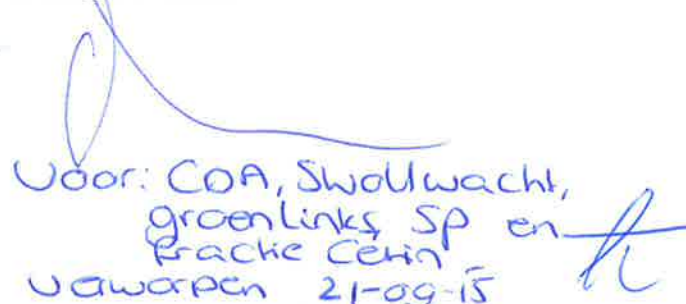 Voor: CDA, Swollwacht,
groenlinks, SP en
Fractie Cetin
verworpen 21-09-15